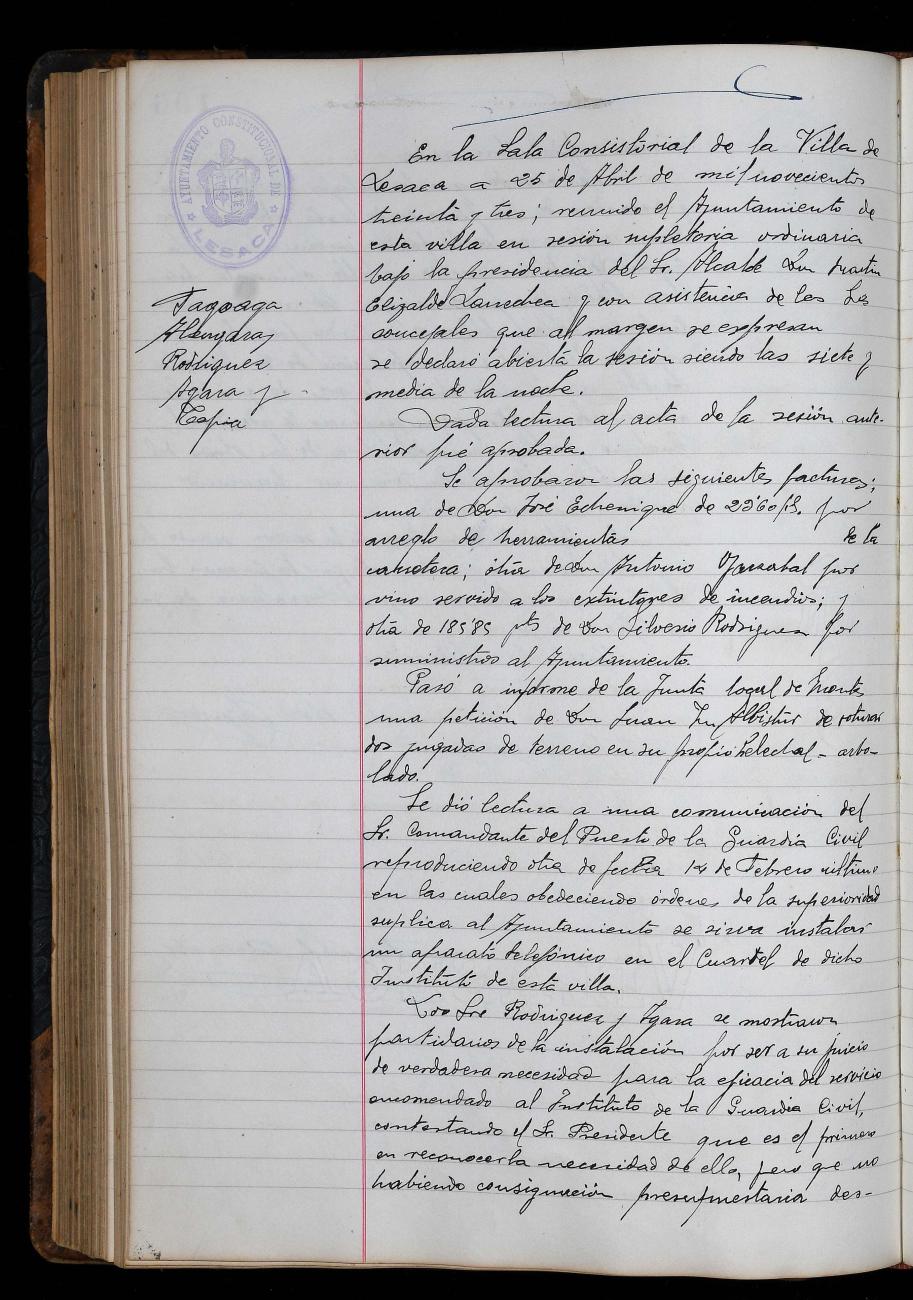 AYUNTAMIENTO CONSTITUCIONAL DE
LESACA
Tagoaga
Rodriguez
Agara y
Tapia
En la Sala Consistorial de la Villa de
Lesaca a 25 de Abril de mil novecientos
treinta y tres; reunido el Ayuntamiento de
esta villa en sesión supletoria ordinaria
bajo la presidencia del Sr. Alcalde Don Martin
Elizalde Lanechea y con asistencia de los Srs
concejales que al margen se expresan
se declaró abierta la sesión siendo las siete y
media de la noche.
Dada lectura al acta de la sesión ante-
rior fué aprobada.
Se aprobaron las siguientes facturas;
una de Don José Echenique de pts. por
arreglo de herramientas de la
carretera; otra de Don Antonio por
vino servido a los extintores de incendios; y
otra de 185'85 pts de Don Silverio Rodriguez por
suministros al Ayuntamiento.
Pasó a informe de la Junta local de Montes
una petición de Don Juan Albistur de roturar
dos yugadas de terreno en su propio helechal - arbo-
lado.
Se dió lectura a una comunicación del
Sr. Comandante del Puesto de la Guardia Civil
reproduciendo otra de fecha 14 de Febrero último
en las cuales obedeciendo órdenes de la superioridad
suplica al Ayuntamiento se sirva instalar
un aparato telefónico en el Cuartel de dicho
Instituto de esta villa.
Los Sre Rodriguez y Agara se mostraron
partidarios de la instalación por ser a su juicio
de verdadera necesidad para la eficacia del servicio
encomendado al Instituto de la Guardia Civil,
contestando el Sr. Presidente que es el primero
en reconocer la necesidad de ello, pero que no
habiendo consignación presupuestaria des-